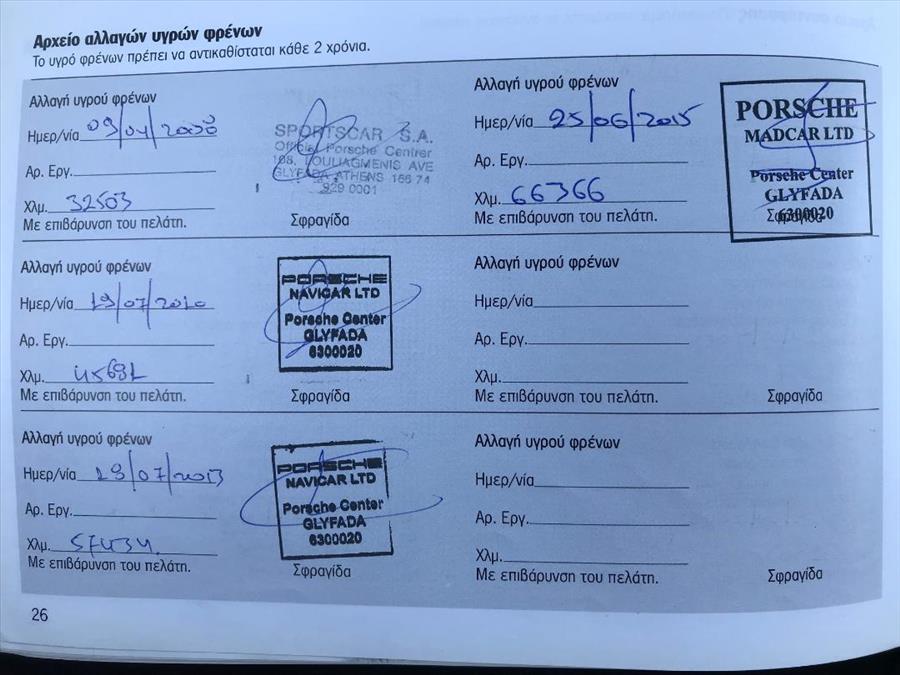 Αρχείο αλλαγών υγρών φρένων
Το υγρό φρένων πρέπει να αντικαθίσταται κάθε 2 χρόνια.
Αλλαγή υγρού φρένων
Ημερ/νία 09/04/2008
Αρ. Εργ.
Χλμ. 32503
Με επιβάρυνση του πελάτη.
SPORTSCAR S.A.
Official Porsche Center
168, VOULIAGMENIS AVE
GLYFADA ATHENS 166 74
929 0001
Σφραγίδα
Αλλαγή υγρού φρένων
Ημερ/νία 19/07/2010
Αρ. Εργ.
Χλμ.
Με επιβάρυνση του πελάτη.
PORSCHE
NAVICAR LTD
Porsche Center
GLYFADA
6300020
Σφραγίδα
Αλλαγή υγρού φρένων
Ημερ/νία 19/07/2013
Αρ. Εργ.
Χλμ. 57434
Με επιβάρυνση του πελάτη.
PORSCHE
NAVICAR LTD
Porsche Center
GLYFADA
6300020
Σφραγίδα
Αλλαγή υγρού φρένων
Ημερ/νία 25/06/2015
Αρ. Εργ.
Χλμ. 66366
Με επιβάρυνση του πελάτη.
PORSCHE
MADCAR LTD
Porsche Center
GLYFADA
6300020
Σφραγίδα
Αλλαγή υγρού φρένων
Ημερ/νία
Αρ. Εργ.
Χλμ.
Με επιβάρυνση του πελάτη.
Σφραγίδα
Αλλαγή υγρού φρένων
Ημερ/νία
Αρ. Εργ.
Χλμ.
Με επιβάρυνση του πελάτη.
Σφραγίδα
26